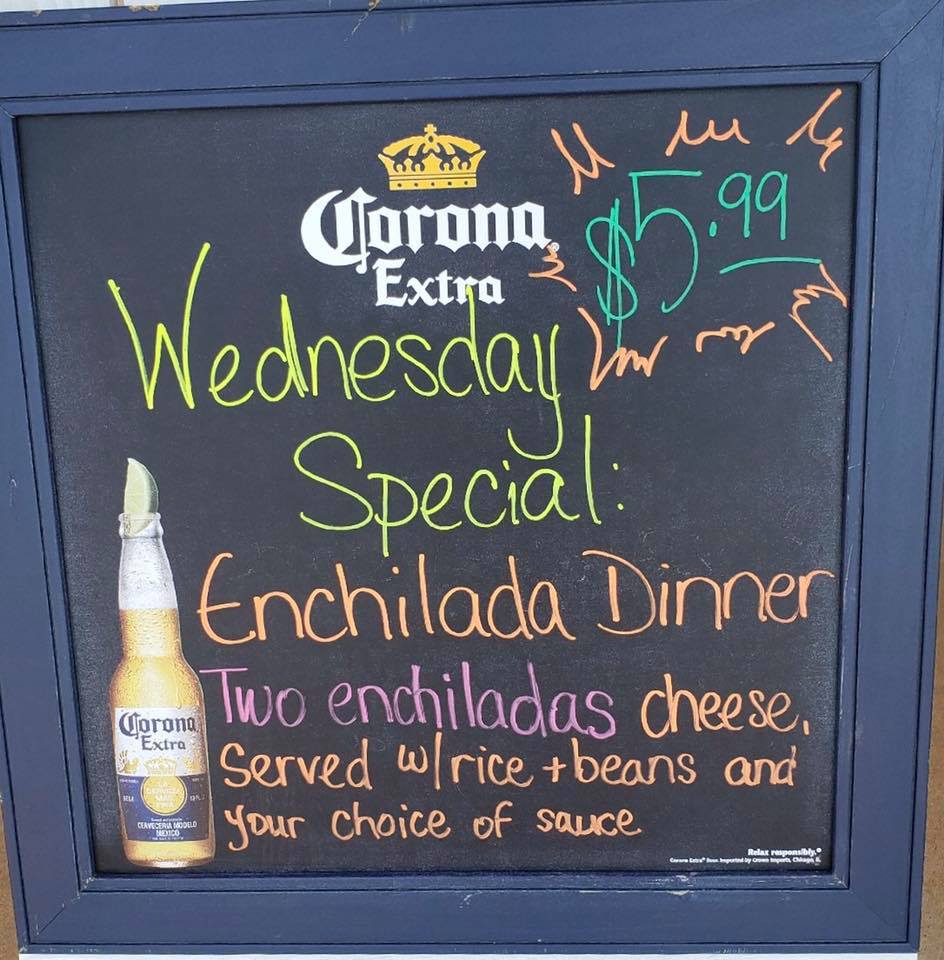 Corona
Extra
$5.99
Wednesday
Special:
Enchilada Dinner
Two enchiladas cheese,
Served w/rice + beans and
your choice of sauce
Corona
Extra
LA
CERVEZA
MAS
FINA
CERVECERIA MODELO
MEXICO
Relax responsibly.®
Corona Extra® Beer. Imported by Crown Imports, Chicago, IL